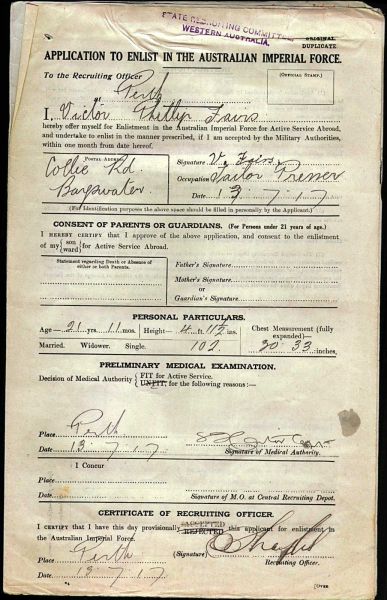 STATE RECRUITING COMMITTEE
WESTERN AUSTRALIA.
ORIGINAL
DUPLICATE
APPLICATION TO ENLIST IN THE AUSTRALIAN IMPERIAL FORCE.
To the Recruiting Officer
(OFFICIAL STAMP.)
Perth
I, Victor Phillip Fairs
hereby offer myself for Enlistment in the Australian Imperial Force for Active Service Abroad,
and undertake to enlist in the manner prescribed, if I am accepted by the Military Authorities,
within one month from date hereof.
POSTAL ADDRESS
Collie Rd.
Signature V. Fairs
Occupation Tailor Presser
Date 13 7 17
(For Identification purposes the above space should be filled in personally by the Applicant.)
CONSENT OF PARENTS OR GUARDIANS. (For Persons under 21 years of age.)
I HEREBY CERTIFY that I approve of the above application, and consent to the enlistment
of my {son (ward} for Active Service Abroad.
Statement regarding Death or Absence of
either or both Parents.
Father's Signature
Mother's Signature
or
Guardian's Signature
PERSONAL PARTICULARS.
Age 21 yrs. 11 mos. Height 4 ft. 11½ ins. Chest Measurement (fully
expanded)—
Married. Widower. Single. 102 30-33 inches,
PRELIMINARY MEDICAL EXAMINATION.
Decision of Medical Authority { FIT for Active Service.
UNFIT for the following reasons :—
Place Perth
Date 13 7 17 Signature of Medical Authority.
I Concur
Place
Date Signature of M.O. at Central Recruiting Depot.
CERTIFICATE OF RECRUITING OFFICER.
I CERTIFY that I have this day provisionally ACCEPTED REJECTED this applicant for enlistment in
the Australian Imperial Force.
Place Perth (Signature)
Date 13 7 17 Recruiting Officer.
[OVER